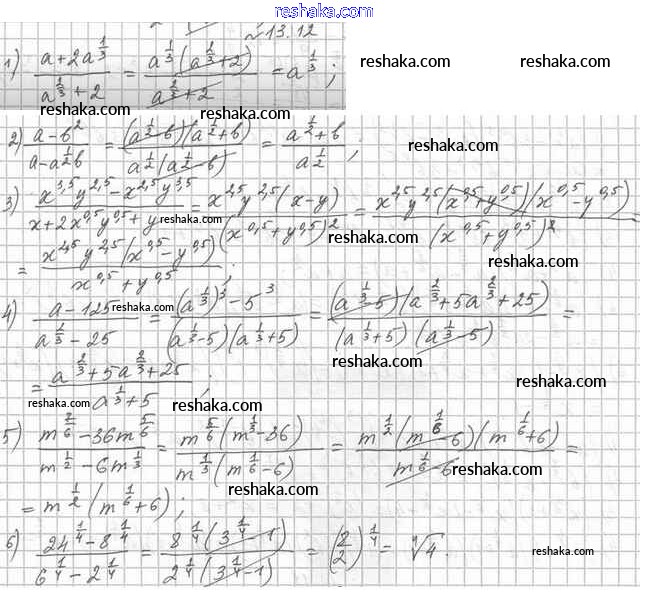 reshak.ru
№13.12
1) (a+2a^(1/3))/(a^(2/3)+2) = (a^(1/3)(a^(2/3)+2))/(a^(2/3)+2) = a^(1/3);
reshaka.com reshaka.com
reshaka.com
2) (a-b²)/(a-a^(1/2)b) = ((a^(1/2)-b)(a^(1/2)+b))/(a^(1/2)(a^(1/2)-b)) = (a^(1/2)+b)/a^(1/2);
reshaka.com
3) (x^3,5y^2,5-x^2,5y^3,5)/(x+2x^0,5y^0,5+y) = (x^2,5y^2,5(x-y))/(x^0,5+y^0,5)² = (x^2,5y^2,5(x^0,5+y^0,5)(x^0,5-y^0,5))/(x^0,5+y^0,5)² =
reshaka.com
= (x^2,5y^2,5(x^0,5-y^0,5))/(x^0,5+y^0,5);
reshaka.com
4) (a-125)/(a^(2/3)-25) = ((a^(1/3))³-5³)/((a^(1/3)-5)(a^(1/3)+5)) = ((a^(1/3)-5)(a^(2/3)+5a^(2/3)+25))/((a^(1/3)+5)(a^(1/3)-5)) =
reshaka.com
reshaka.com
= (a^(2/3)+5a^(2/3)+25)/(a^(1/3)+5);
reshaka.com
reshaka.com reshaka.com
5) (m^(7/6)-36m^(5/6))/(m^(1/2)-6m^(1/3)) = (m^(5/6)(m^(1/3)-36))/(m^(1/3)(m^(1/6)-6)) = (m^(1/2)(m^(1/6)-6)(m^(1/6)+6))/(m^(1/6)-6) =
reshaka.com
= m^(1/2)(m^(1/6)+6);
reshaka.com
6) (24^(1/4)-8^(1/4))/(6^(1/4)-2^(1/4)) = (8^(1/4)(3^(1/4)-1))/(2^(1/4)(3^(1/4)-1)) = (8/2)^(1/4) = ⁴√4.
reshaka.com